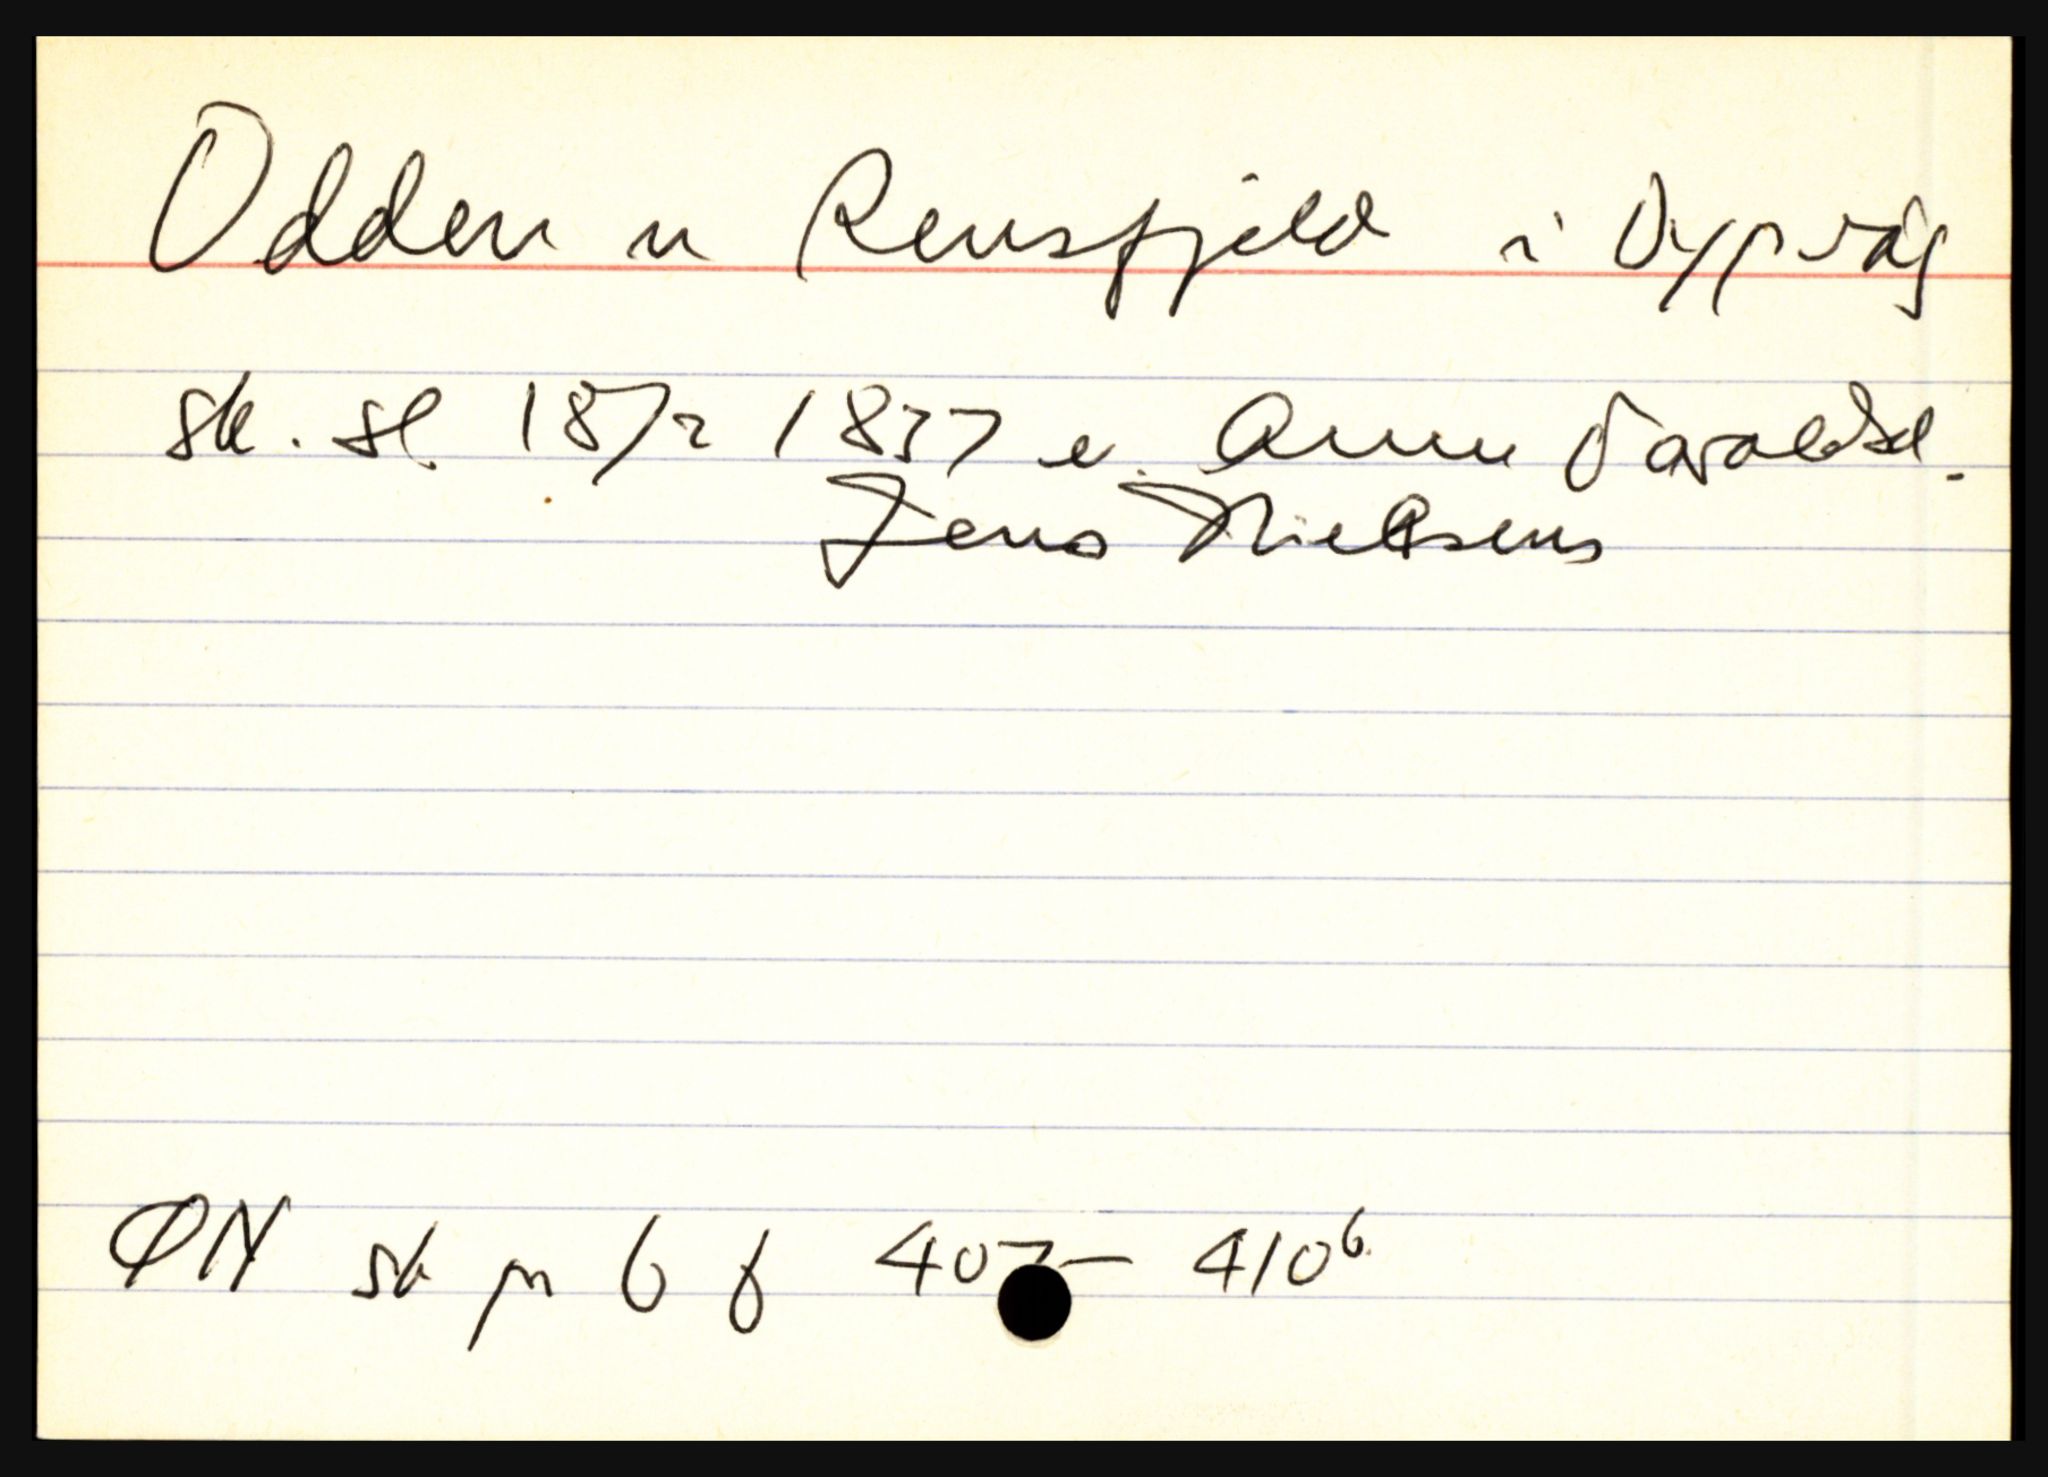 Odden u Rensfjeld i Dypvåg
sk. sl 18/2 1837 e. Anne Taraldsd.
Jens Nielsens
ØN sk pr 6 f 407 — 410b